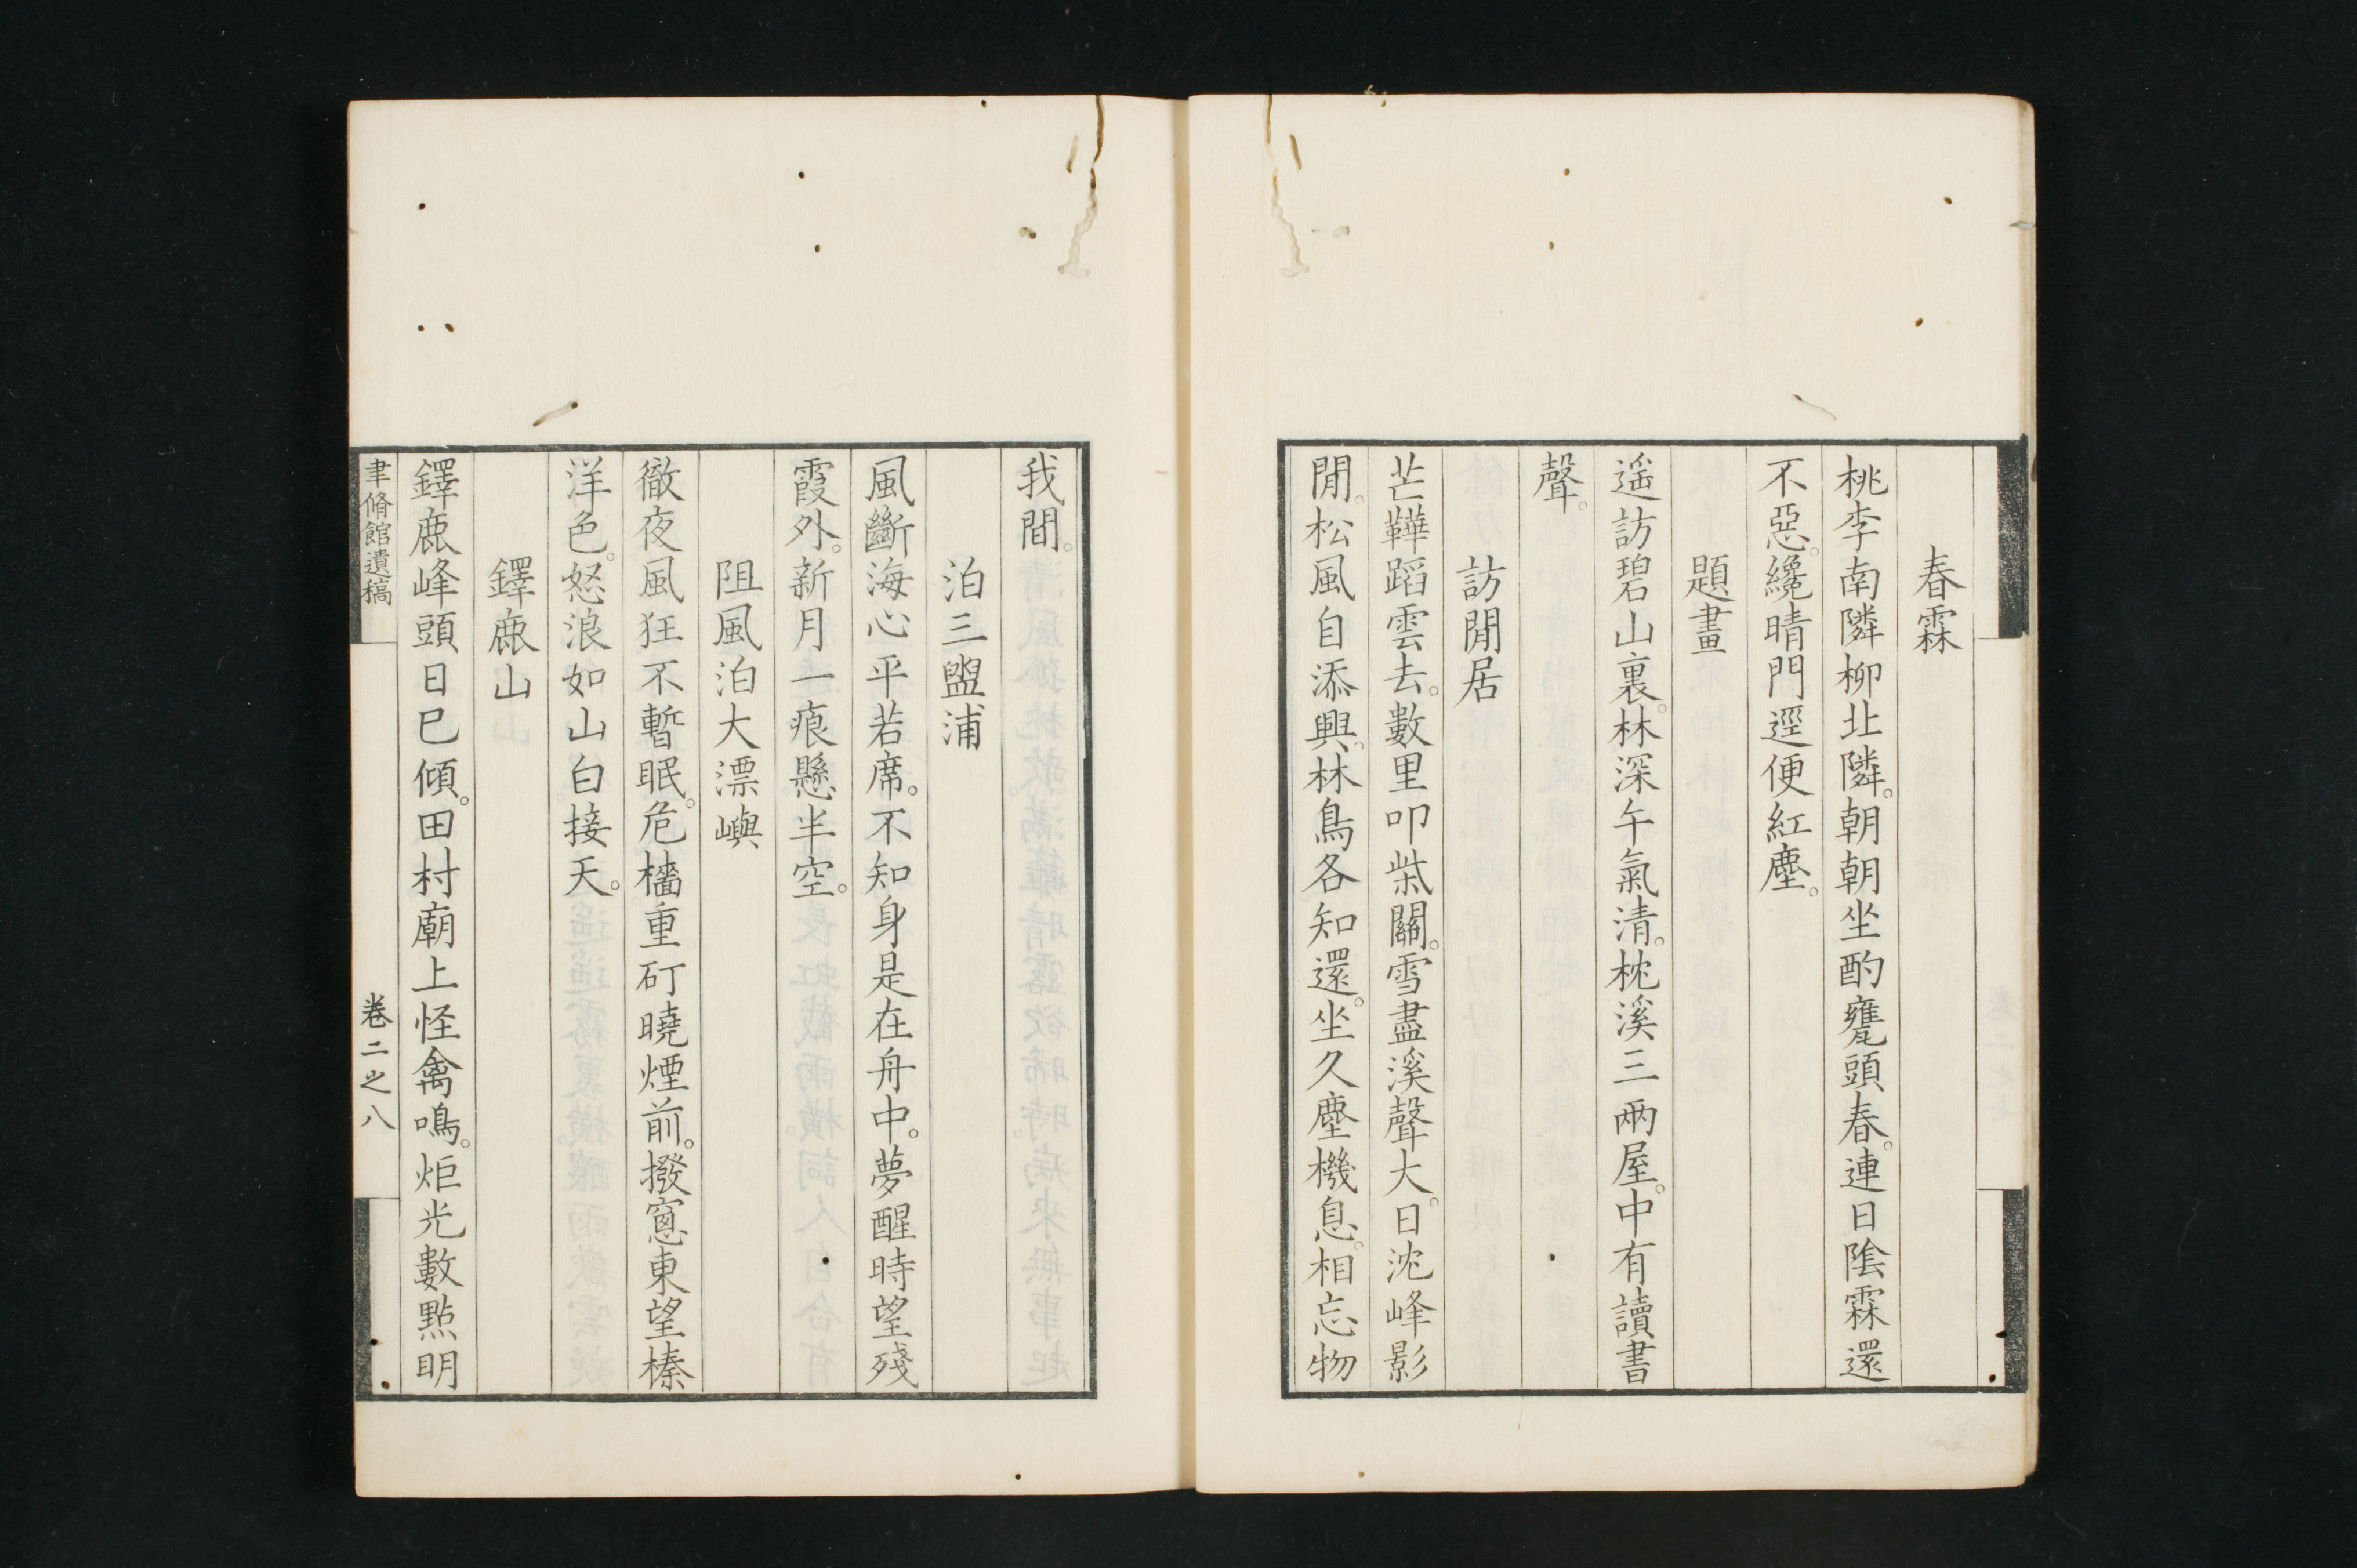 春霖
桃李南隣柳北隣。朝朝坐酌甕頭春。連日陰霖還
不惡。纔晴門逕便紅塵。
題畫
遥訪碧山裏。林深午氣清。枕溪三兩屋。中有讀書
聲。
訪閒居
芒鞾蹈雲去。數里叩柴關。雪盡溪聲大。日沈峰影
閒。松風自添興。林鳥各知還。坐久塵機息。相忘物
我間。
泊三盥浦
風斷海心平若席。不知身是在舟中。夢醒時望殘
霞外。新月一痕懸半空。
阻風泊大漂嶼
徹夜風狂不暫眠。危檣重矴曉煙前。撥窻東望榛
洋色。怒浪如山白接天。
鐸鹿山
鐸鹿峰頭日已傾。田村廟上怪禽鳴。炬光數點明
聿脩館遺稿
卷二之八